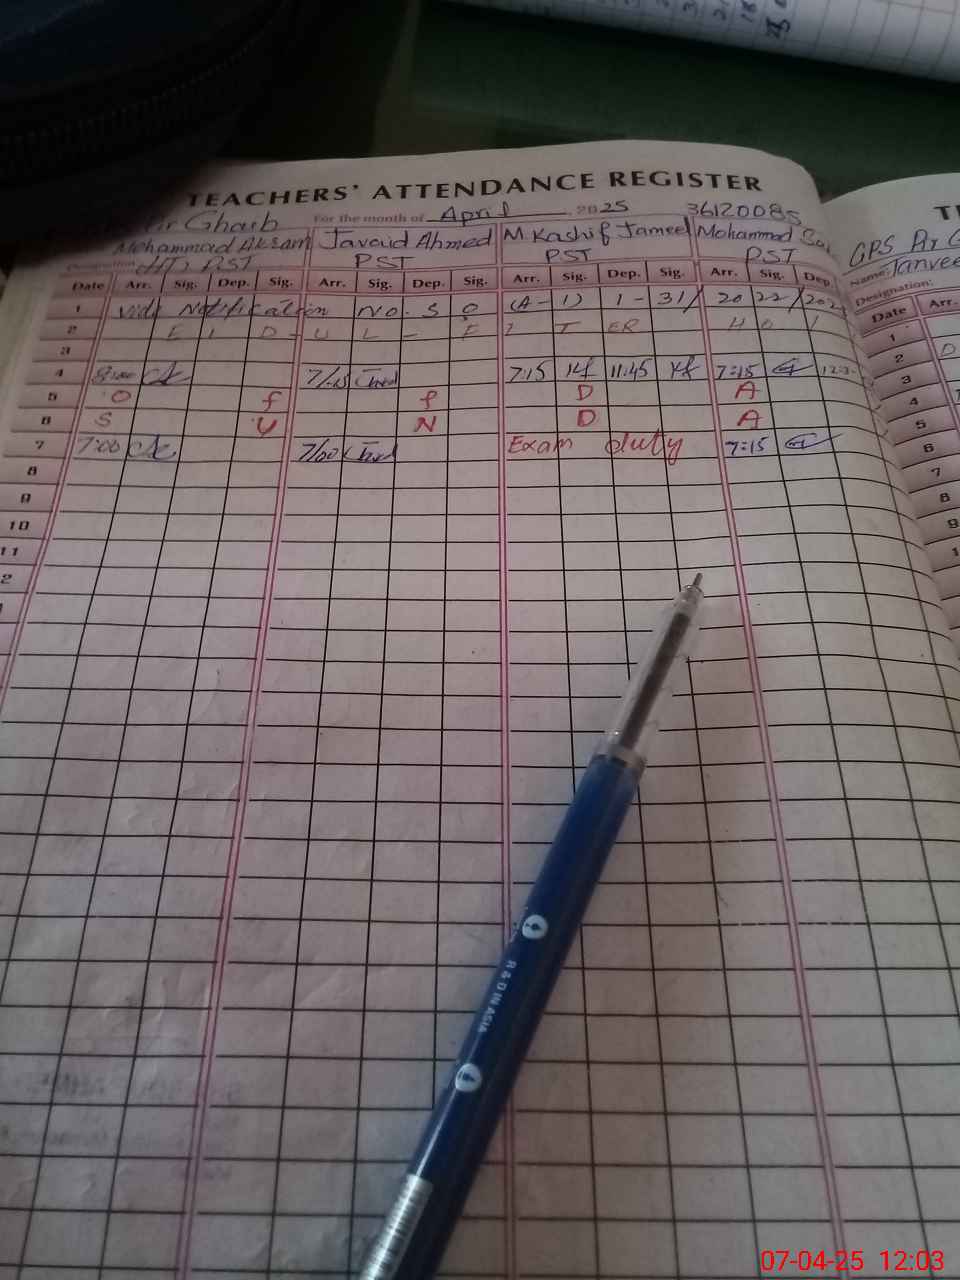 TEACHERS' ATTENDANCE REGISTER
Pir Gharb For the month of April, 2025 36120085
Mohammad Akram Javaid Ahmed M. Kashif Jameel Mohammad
Designation (HT) PST PST PST PST
Date Arr. Sig. Dep. Sig. Arr. Sig. Dep. Sig. Arr. Sig. Dep. Sig. Arr. Sig. Dep.
1 Vide Notification No. S O (A-1) 1-31/2022/202
2 E I D - U L - F I T ER H O
3
4 8:00 7:15 11:45 7:15
5 O F F D A
6 S U N D A
7 7:00 7/00 Exam duty 7:15
8
9
10
11
2
GPS Pir G
Name: Tanvee
Designation:
Date Arr.
1
2 D
3
4
5
6
7
8
9
1
R & D IN ASIA
07-04-25 12:03